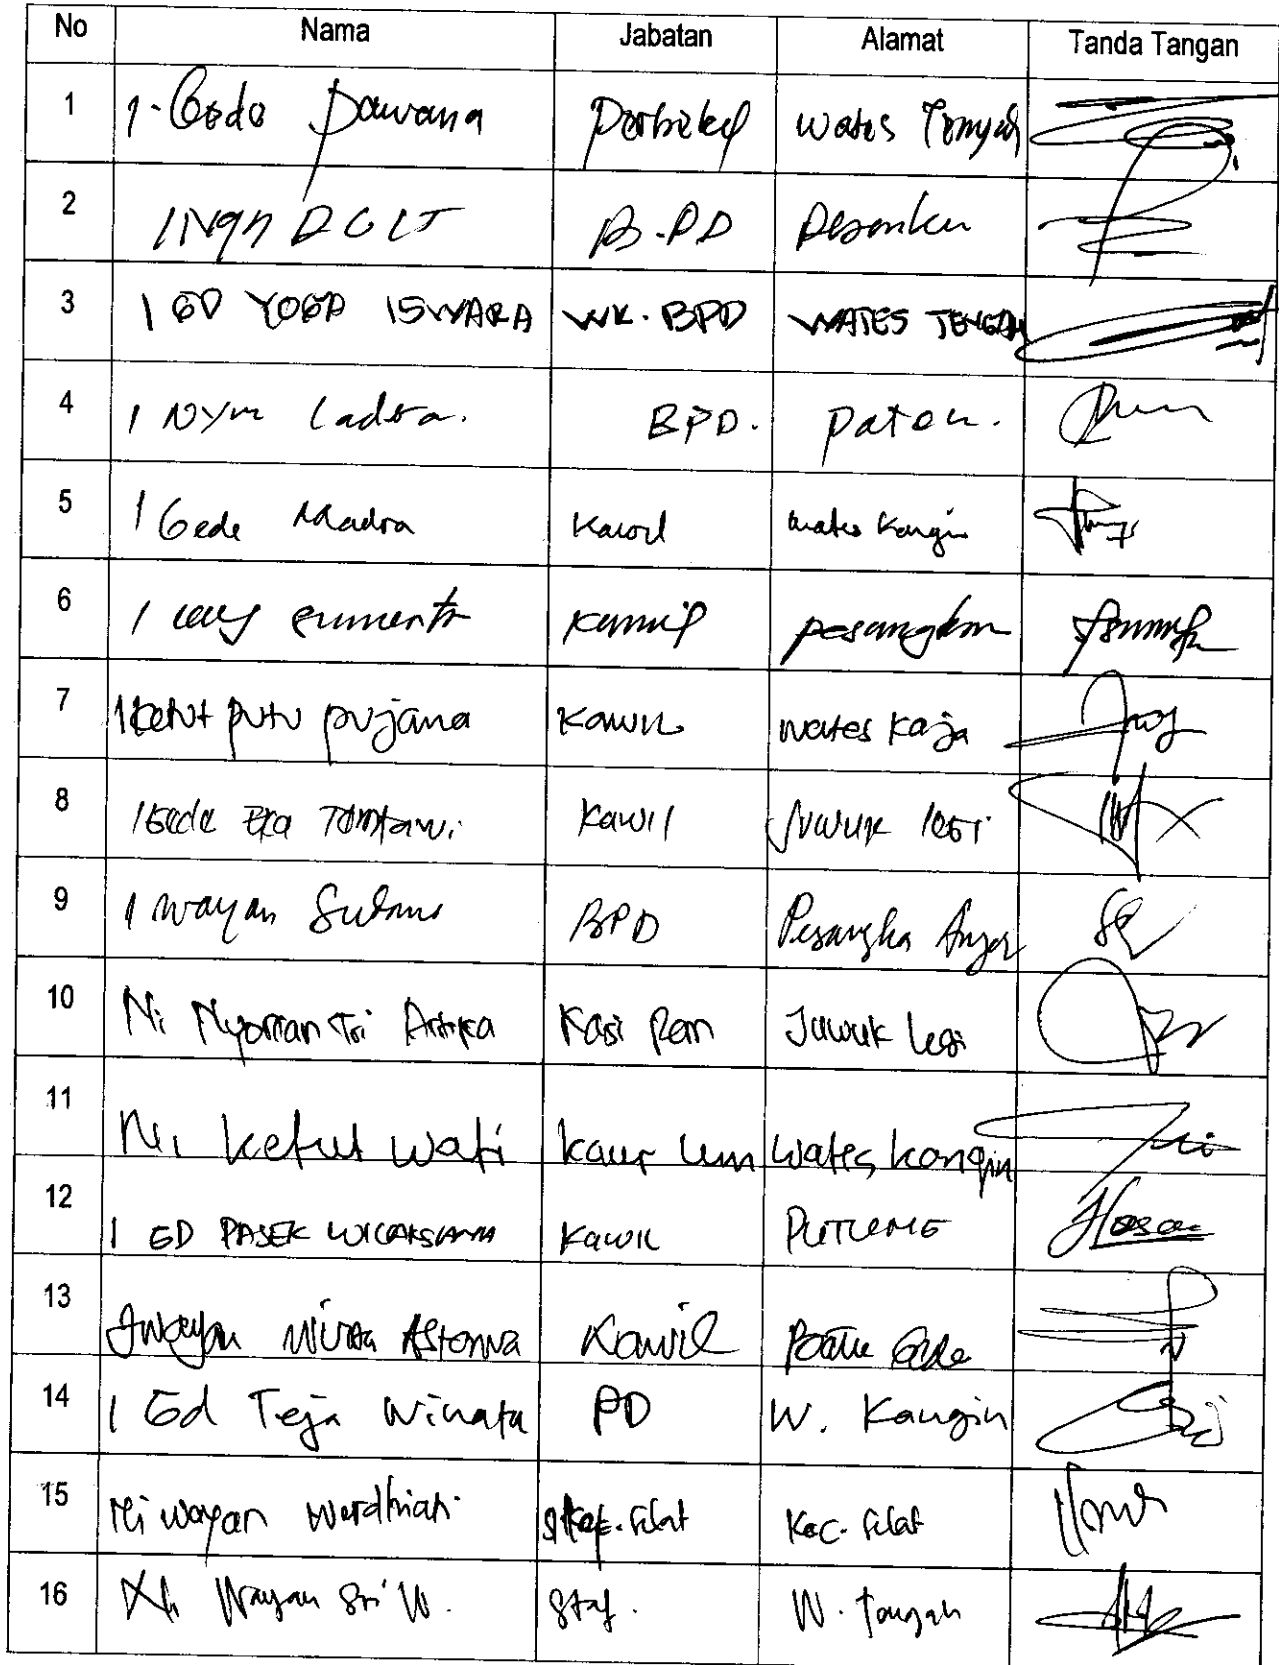 No Nama Jabatan Alamat Tanda Tangan
1 I Gede Pawana Perbekel Wates Tengah
2 I Ngh DGLT B.PD
3 I GD YOGA ISWARA WK. BPD WATES TENGAH
4 I Nym Ladra. BPD. Paten.
5 I Gede Madra Kawil Wates Kangin
6 I Kawil
7 I Ketut Putu Pujana Kawil Wates Kaja
8 I Gede Eka Kawil Juwuk Legi
9 I Wayan BPD Pesangka Anyar
10 Ni Nyoman Tri Artika Kasi Pem Juwuk Legi
11 Ni Ketut Wati Kaur Um Wates Kangin
12 I GD PASEK WICAKSANA Kawil
13 I Wayan Kawil Batu Gede
14 I Gd Teja Winata PD W. Kangin
15 Ni Wayan Werdhiati Kec. Selat
16 Ni Wayan Sri W. Staf. W. Tengah